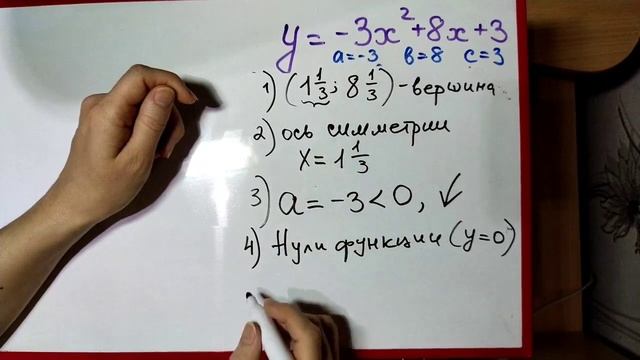 y = -3x² + 8x + 3
a=-3 в=8 c=3
1) (1 1/3; 8 1/3) - вершина
2) ось симметрии
x = 1 1/3
3) a = -3 < 0, ↙
4) Нули функции (y=0)